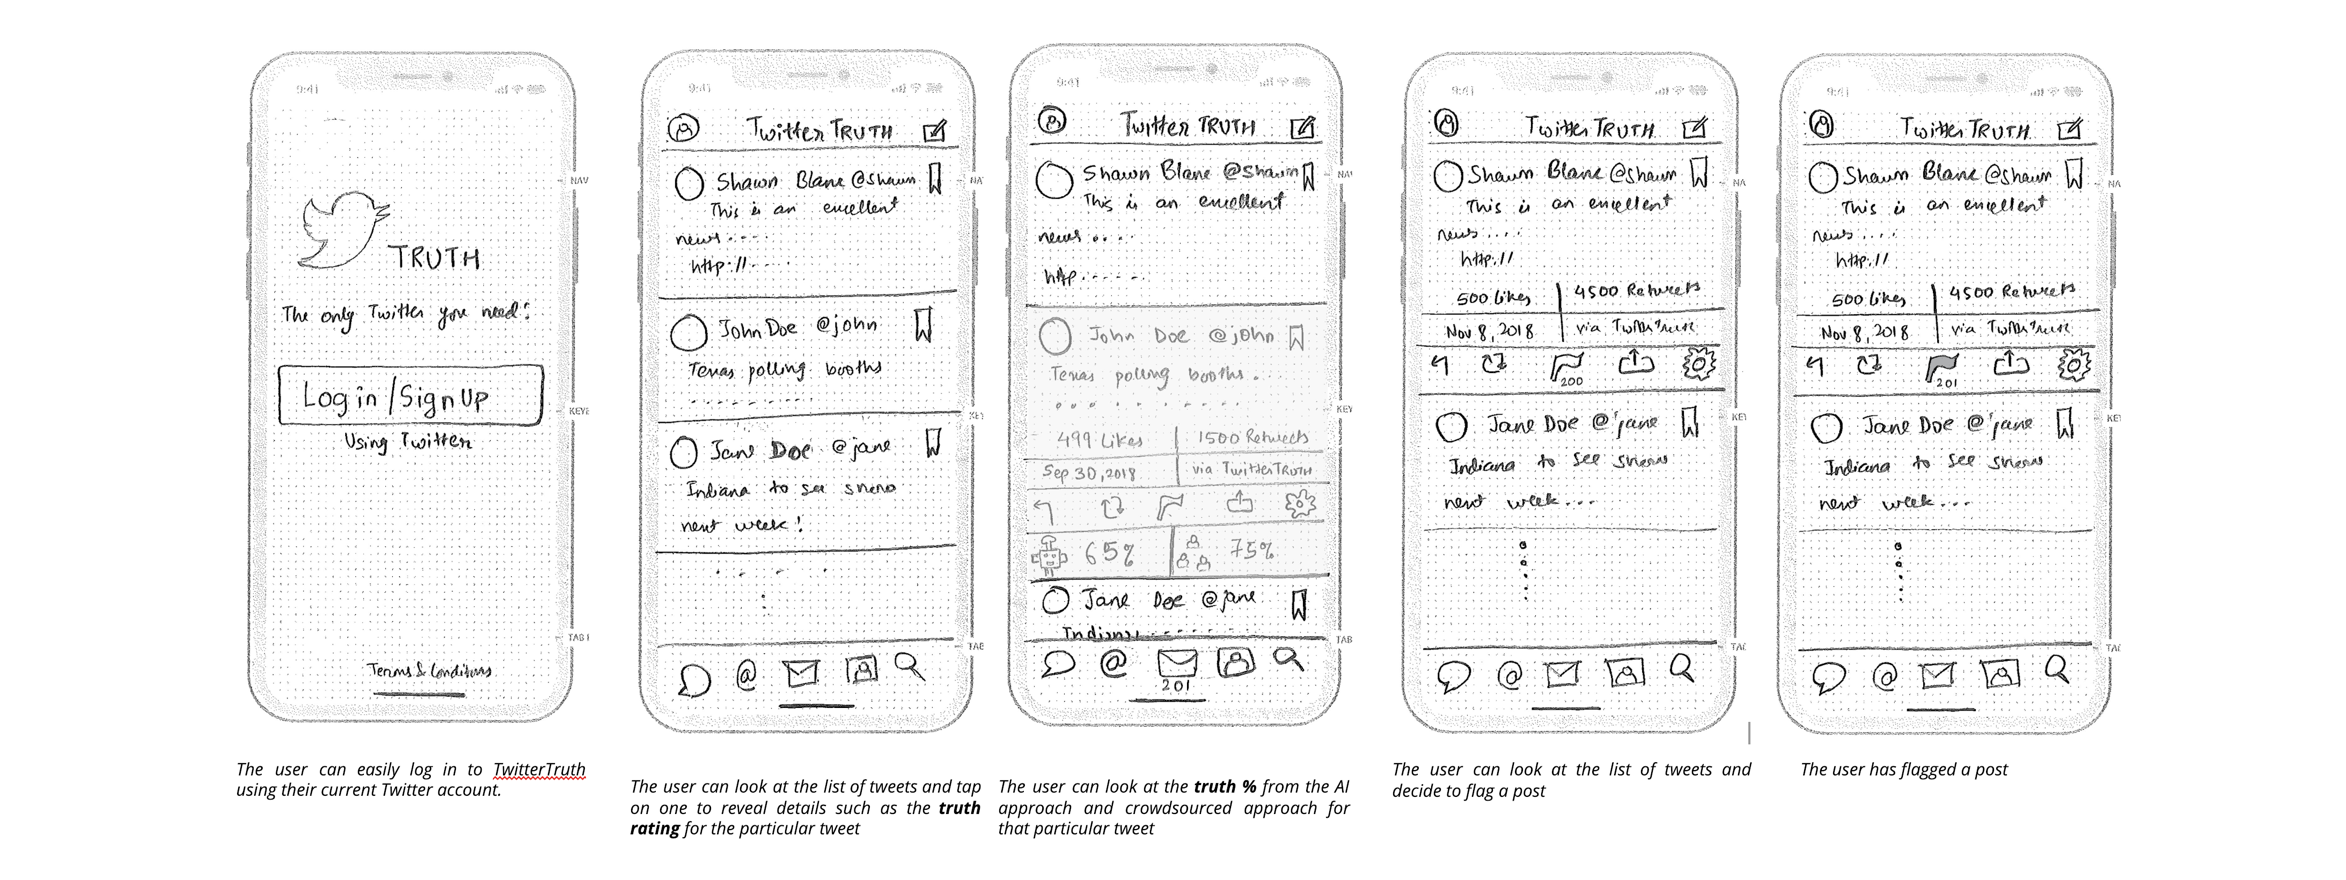 9:41
NAV
TRUTH
The only Twitter you need!
KEYB
Log in / Sign Up
Using Twitter
TAB
Terms & Conditions
The user can easily log in to TwitterTruth
using their current Twitter account.
9:41
Twitter TRUTH
Shawn Blane @shawn
NA
This is an excellent
news....
http://.....
John Doe @john
Texas polling booths
..........
KEY
Jane Doe @jane
Indiana to see snow
next week!
TAB
The user can look at the list of tweets and tap
on one to reveal details such as the truth
rating for the particular tweet
9:41
Twitter TRUTH
Shawn Blane @shawn
NAV
This is an excellent
news ....
http......
John Doe @john
Texas polling booths ...
KEY
499 Likes 1500 Retweets
Sep 30, 2018 via TwitterTRUTH
65% 75%
Jane Doe @jane
Indiana ........
TAB
@
201
The user can look at the truth % from the AI
approach and crowdsourced approach for
that particular tweet
9:41
Twitter TRUTH
Shawn Blane @shawn
NA
This is an excellent
news ....
http://
500 likes 4500 Retweets
Nov 8, 2018 via
200
Jane Doe @jane
KEY
Indiana to see
next week...
TAB
@
The user can look at the list of tweets and
decide to flag a post
9:41
Twitter TRUTH
Shawn Blane @shawn
NA
This is an excellent
news ....
http://
500 likes 4500 Retweets
Nov 8, 2018 via
201
Jane Doe @jane
KEY
Indiana to see
next week...
TAB
@
The user has flagged a post